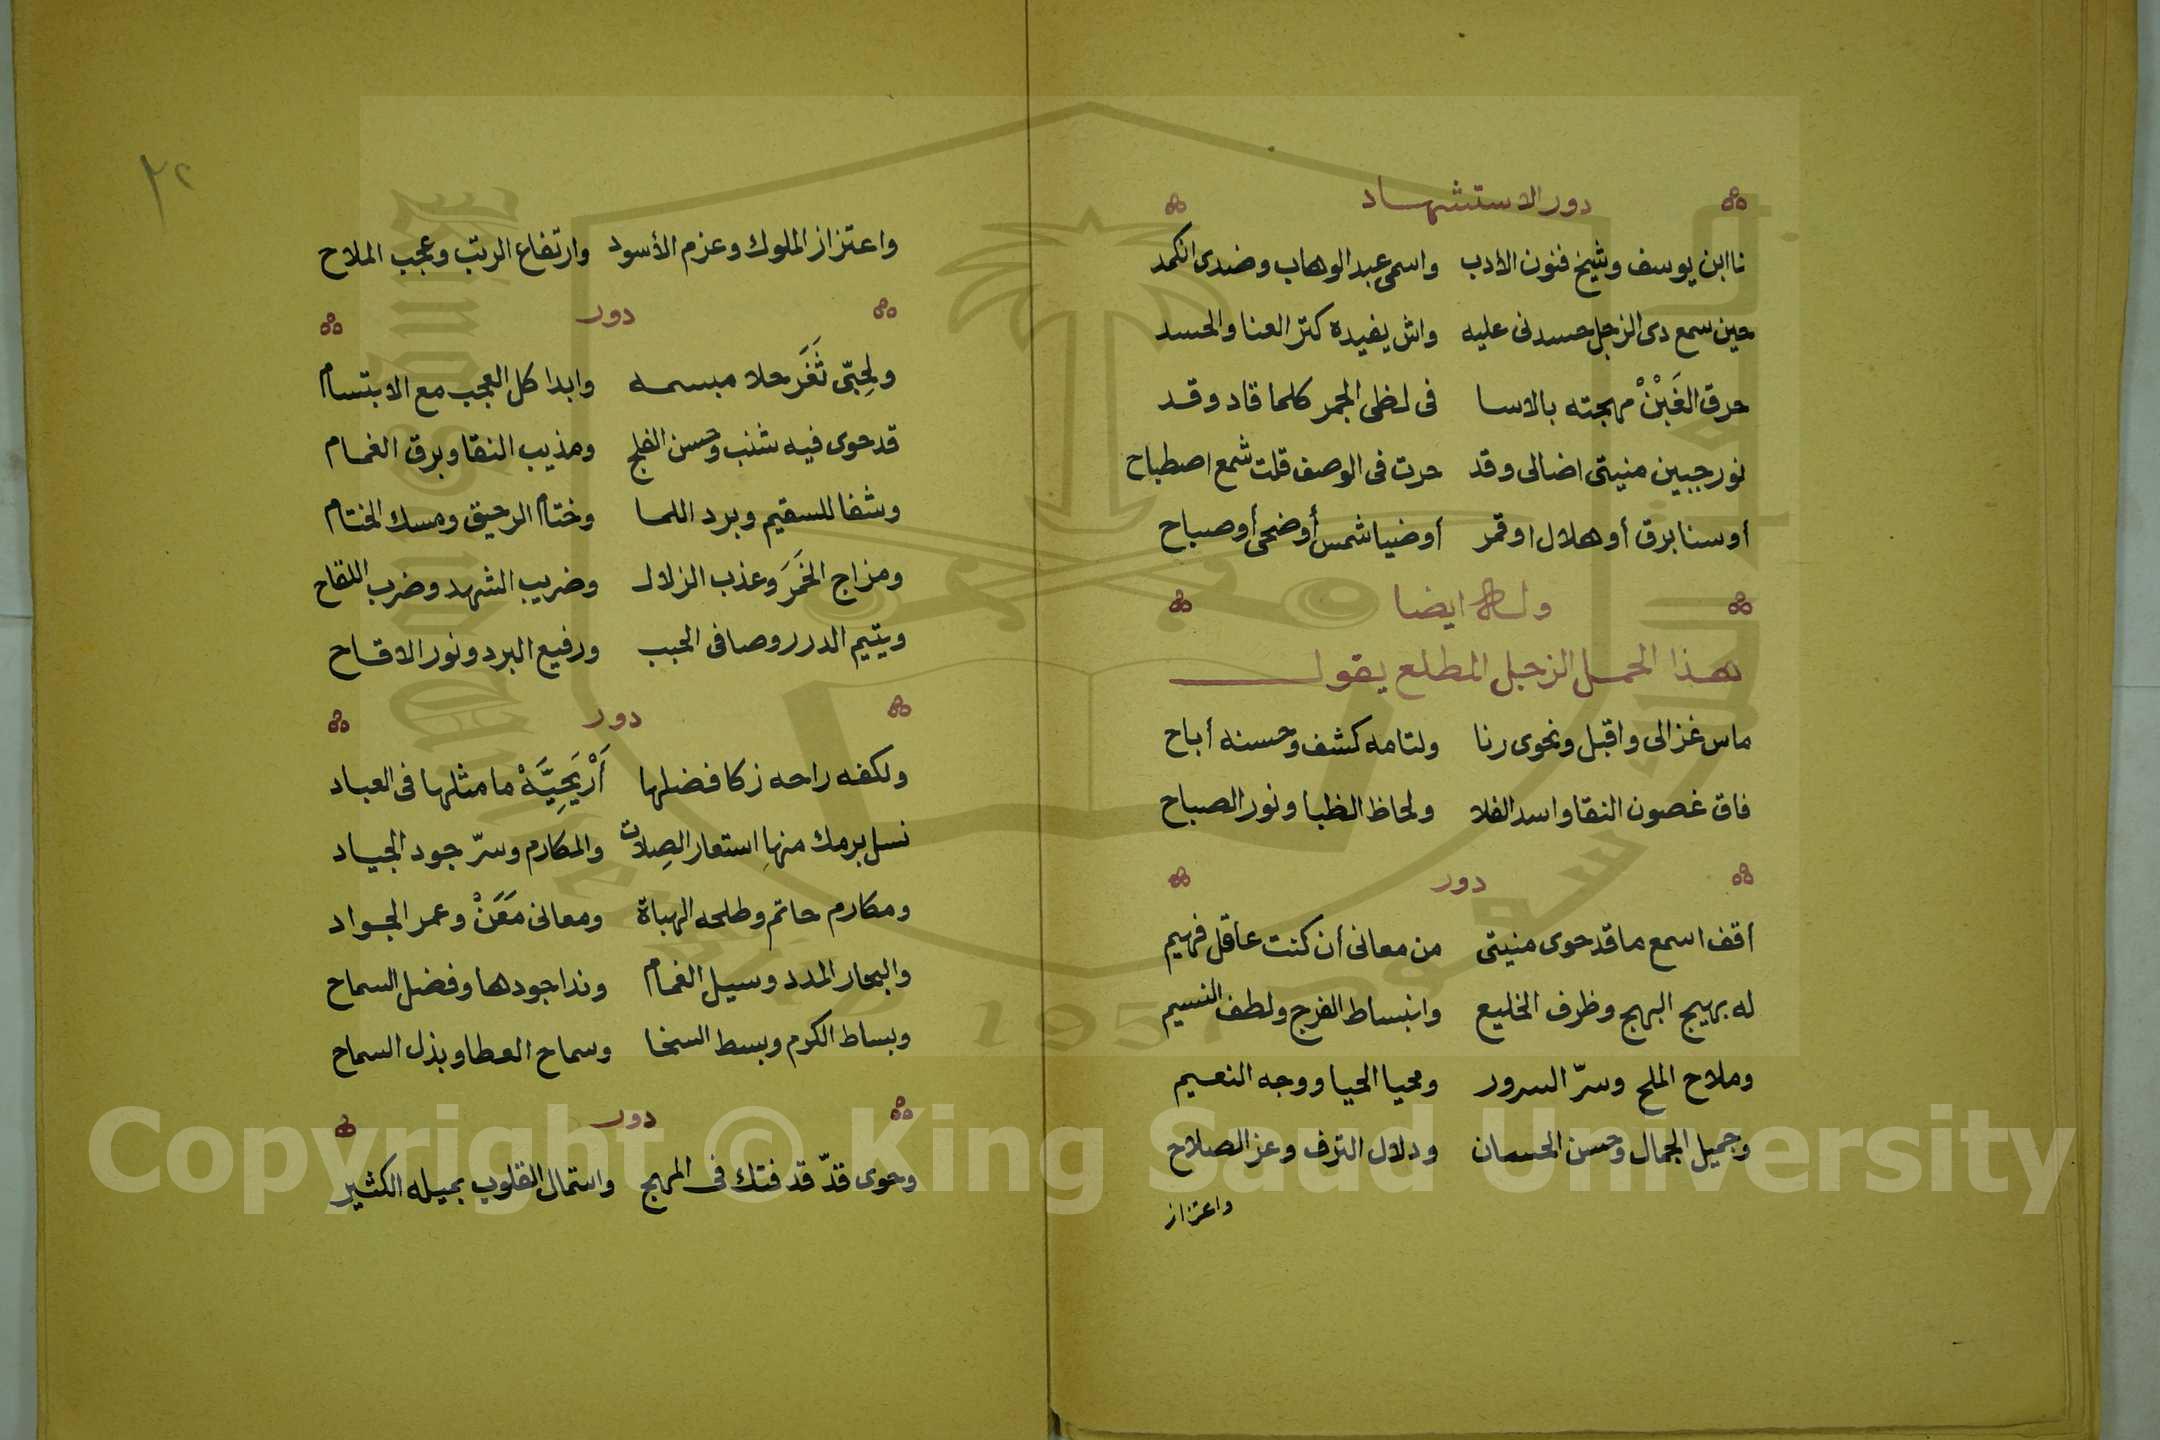 دور الاستشهاد
نا ابن يوسف وشيخ فنون الادب واسمى عبد الوهاب وضدى انكمد
حين سمع دى الزجل حسدنى عليه واش يفيده كتر العنا والحسد
حرق الغَبْنْ مهجته بالاسا فى لظى الجمر كلما قاد وقد
نور جبين منيتى اضالى وقد حرت فى الوصف قلت شمع اصطباح
أو سنا برق أو هلال او قمر أو ضيا شمس أو ضحى أو صباح
وله ايضا
هذا الحمل الزجل المطلع يقول
ماس غزالى واقبل ونحوى رنا ولثامه كشف وحسنه أباح
فاق غصون النقا واسد الفلا ولحاظ الظبا ونور الصباح
دور
أقف اسمع ما قد حوى منيتى من معانى أن كنت عاقل فهيم
له بهيج البهج وظرف الخليع وانبساط الفرج ولطف النسيم
وملاح الملح وسرّ السرور ومحيا الحيا ووجه النعيم
وجميل الجمال وحسن الحسان ودلال الترف وعز الصلاح
واعتزاز
٢٢
واعتزاز الملوك وعزم الأسود وارتفاع الرتب وعجب الملاح
دور
ولحِبّى ثَغَر حلا مبسمه وابدا كل العجب مع الابتسام
قد حوى فيه شنب وحسن الفلج ومذيب النقا وبرق الغمام
وشفا للسقيم وبرد اللما وختام الرحيق ومسك الختام
ومزاج الخَمَر وعذب الزلال وضريب الشهد وضرب اللقاح
ويتيم الدرر وصافى الحبب ورفيع البرد ونور الاقاح
دور
ولكفه راحه زكا فضلها أَرْيَحِيَّهْ ما مثلها فى العباد
نسل برمك منها استعار الصِلات والمكارم وسرّ جود الجياد
ومكارم حاتم وطلحه الهباة ومعانى مَعَنْ وعمر الجواد
والبحار المدد وسيل الغمام وندا جودها وفضل السماح
وبساط الكرم وبسط السخا وسماح العطا وبذل السماح
دور
وحوى قدّ قد فتك فى المهج واستمال القلوب بميله الكثير
Copyright © King Saud University
1957